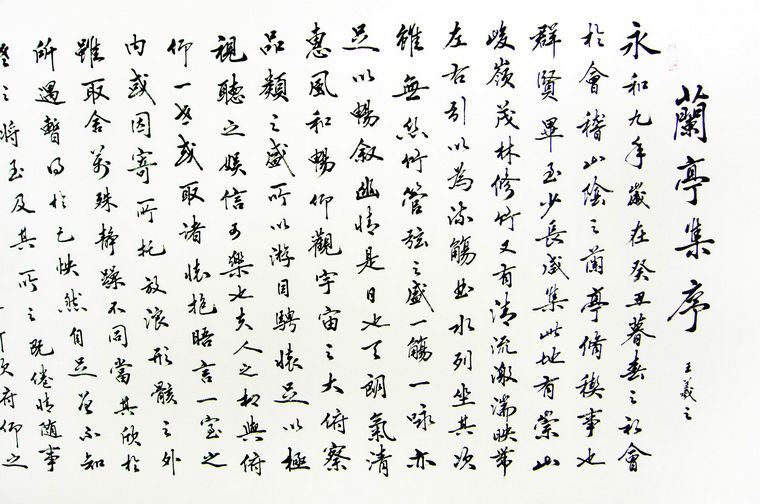 蘭亭集序
王羲之
永和九年歲在癸丑暮春之初會
於會稽山陰之蘭亭脩禊事也
群賢畢至少長咸集此地有崇山
峻嶺茂林修竹又有清流激湍映帶
左右引以為流觴曲水列坐其次
雖無絲竹管弦之盛一觴一詠亦
足以暢敘幽情是日也天朗氣清
惠風和暢仰觀宇宙之大俯察
品類之盛所以游目騁懷足以極
視聽之娛信可樂也夫人之相與俯
仰一世或取諸懷抱晤言一室之
內或因寄所托放浪形骸之外
雖取舍萬殊靜躁不同當其欣於
所遇暫得於己怏然自足曾不知
老之將至及其所之既倦情随事
俯仰之